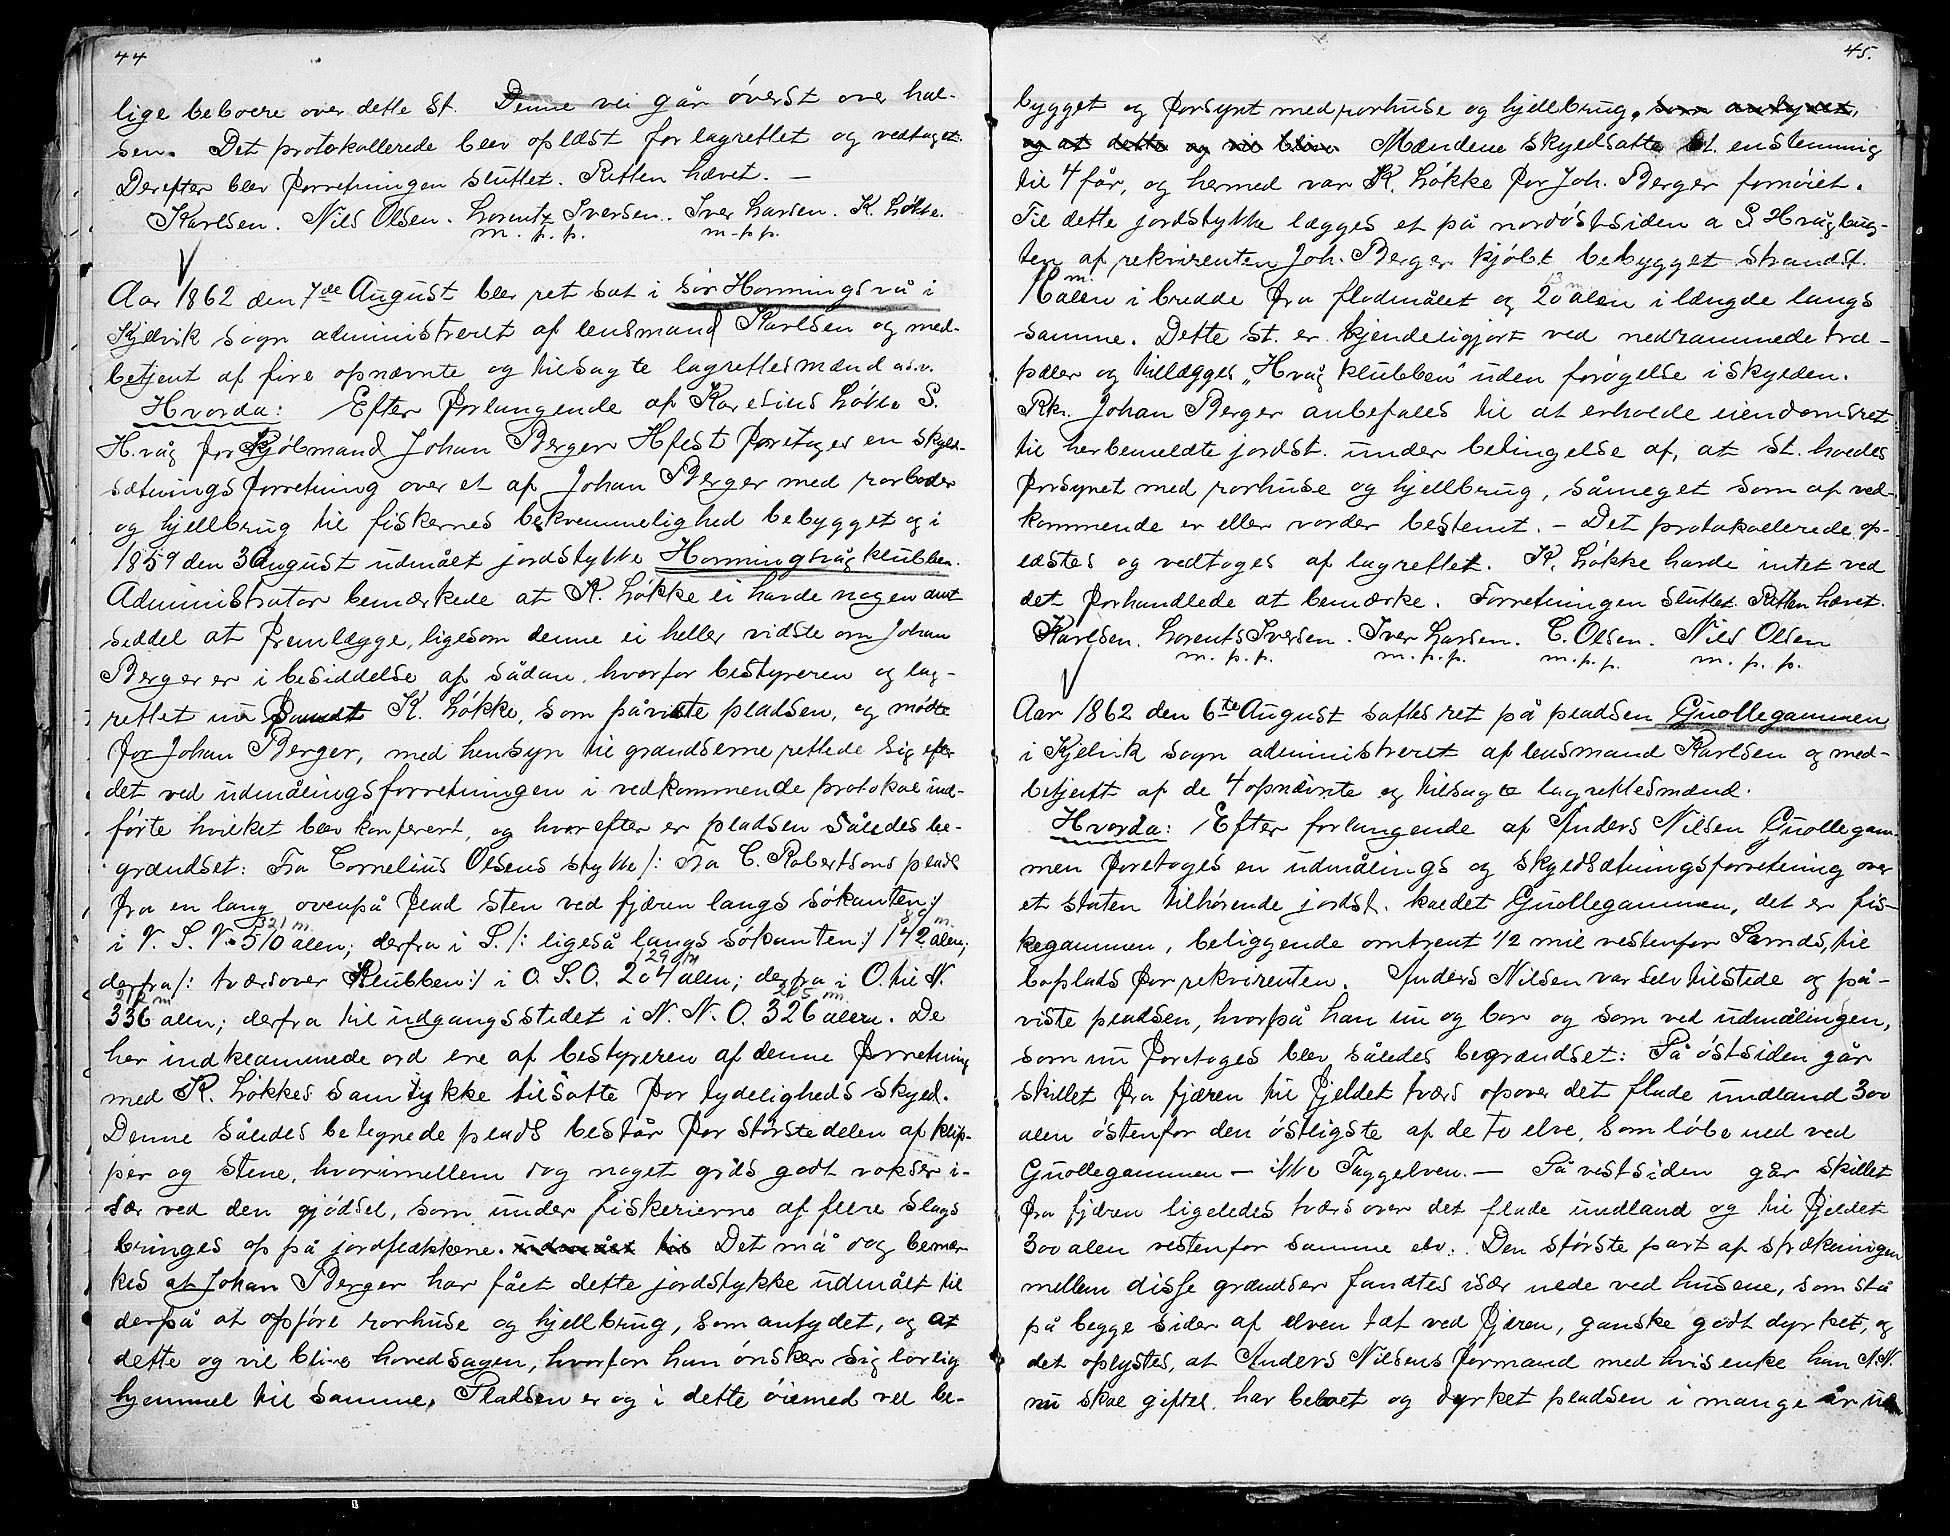 44
lige beboere over dette St. Denne vei går øverst over hal-
sen. Det protokollerede blev oplæst for lagrettet og vedtaget
Derefter blev forretningen sluttet. Retten hævet. —
Karlsen. Nils Olsen. Lorentz Iversen. Iver Larsen. K. Løkke.
m. p. p. m. p. p.
Aar 1862 den 7de August blev ret sat i Sør Honningsvå i
Kjelvik sogn administreret af lensmand Karlsen og med-
betjent af fire opnævnte og tilsagte lagrettesmænd
Hvorda: Efter forlangende af Karesius Løkke S.
H.våg for Kjøbmand Johan Berger Hfest foretoges en skyld-
sætningsforretning over et af Johan Berger med rorboder
og hjellbrug til fiskernes bekvemmelighed bebygget og i
1859 den 3 August udmålt jordstykke Honningsvåg klubben.
Administrator bemærkede at K. Løkke ei havde nogen amt
seddel at fremlægge, ligesom denne ei heller vidste om Johan
Berger er i besiddelse af sådan, hvorfor bestyreren og lag-
rettet nu samdt K. Løkke, som påviste pladsen, og mødte
for Johan Berger, med hensyn til grændserne rettede sig efter
det ved udmålingsforretningen i vedkommende protokol ind-
førte hvilket blev konfereret, og hvorefter er pladsen således be-
grændset: Fra Cornelius Olsens stykke /: Fra C. Robertsons plads
fra en lang ovenpå flad sten ved fjæren langs søkanten :/
321 m. 89 m.
i V. S. V. 510 alen; derfra i S. /: ligeså langs søkanten :/ 142 alen;
129 m
derfra /: tværsover Klubben :/ i O. S. O. 204 alen; derfra i O. til N.
212 m 205 m.
336 alen; derfra til udgangsstedet i N. N. O. 326 alen. De
her indklammede ord ere af bestyreren af denne forretning
med K. Løkkes samtykke tilsatte for tydeligheds skyld.
Denne således betegnede plads består for størstedelen af klip-
per og stene, hvorimellem dog noget græs godt vokser i-
sær ved den gjødsel, som under fiskerierne af flere slags
bringes op på jordflækkene. udmålt til Det må dog bemær-
kes at Johan Berger har fået dette jordstykke udmålt til
derpå at opføre rorhuse og hjellbrug, som antydet, og at
dette og vil blive hovedsagen, hvorfor han ønsker sig lovlig
hjemmel til samme. Pladsen er og i dette øiemed vel be-
45.
bygget og forsynt med rorhuse og hjellbrug, som antydet,
og at dette og vil blive Mændene skyldsatte St. enstemmig
til 4 får, og hermed var K. Løkke for Joh. Berger fornøiet.
Til dette jordstykke lægges et på nordøstsiden a S Hvåg bug-
ten af rekvirenten Joh. Berger kjøbt bebygget strandst.
m. 13 m
16 alen i bredde fra flodmålet og 20 alen i længde langs
samme. Dette St. er kjendeligjort ved nedrammede træ-
pæler og tillægges „Hvåg klubben“ uden forøgelse i skylden.
Rkr. Johan Berger anbefales til at erholde eiendomsret
til herbemeldte jordst. under betingelse af, at St. holdes
forsynet med rorhuse og hjellbrug, såmeget som af ved-
kommende er eller vorder bestemt. – Det protokollerede op-
læstes og vedtoges af lagrettet. K. Løkke havde intet ved
det forhandlede at bemærke. Forretningen sluttet. Retten hævet.
Karlsen. Lorents Iversen. Iver Larsen. C. Olsen. Nils Olsen
m. p. p. m. p. p. m. p. p. m. p. p.
Aar 1862 den 6te August sattes ret på pladsen Guollegammen
i Kjelvik sogn administreret af lensmand Karlsen og med-
betjent af de 4 opnævnte og tilsagte lagrettesmænd.
Hvorda: Efter forlangende af Anders Nilsen Guollegam-
men foretoges en udmålings og skyldsætningsforretning over
et staten tilhørende jordst. kaldet Guollegammen, det er fis-
kegammen, beliggende omtrent 1/2 mil vestenfor Sarnds, til
boplads for rekvirenten. Anders Nilsen var selv tilstede og på-
viste pladsen, hvorpå han nu og bor og som ved udmålingen,
som nu foretoges blev således begrændset: På østsiden går
skillet fra fjæren til fjeldet tværs opover det flade undland 300
alen østenfor den østligste af de to elve, som løbe ned ved
Guollegammen – ikke Taggelven. – På vestsiden går skillet
fra fjæren ligeledes tværsover det flade undland og til fjeldet
300 alen vestenfor samme elv. Den største part af strækningen
mellem disse grændser fandtes især nede ved husene, som stå
på begge sider af elven tæt ved fjæren, ganske godt dyrket, og
det oplystes, at Anders Nilsens formand med hvis enke han A. N.
nu skal giftes, har beboet og dyrket pladsen i mange år